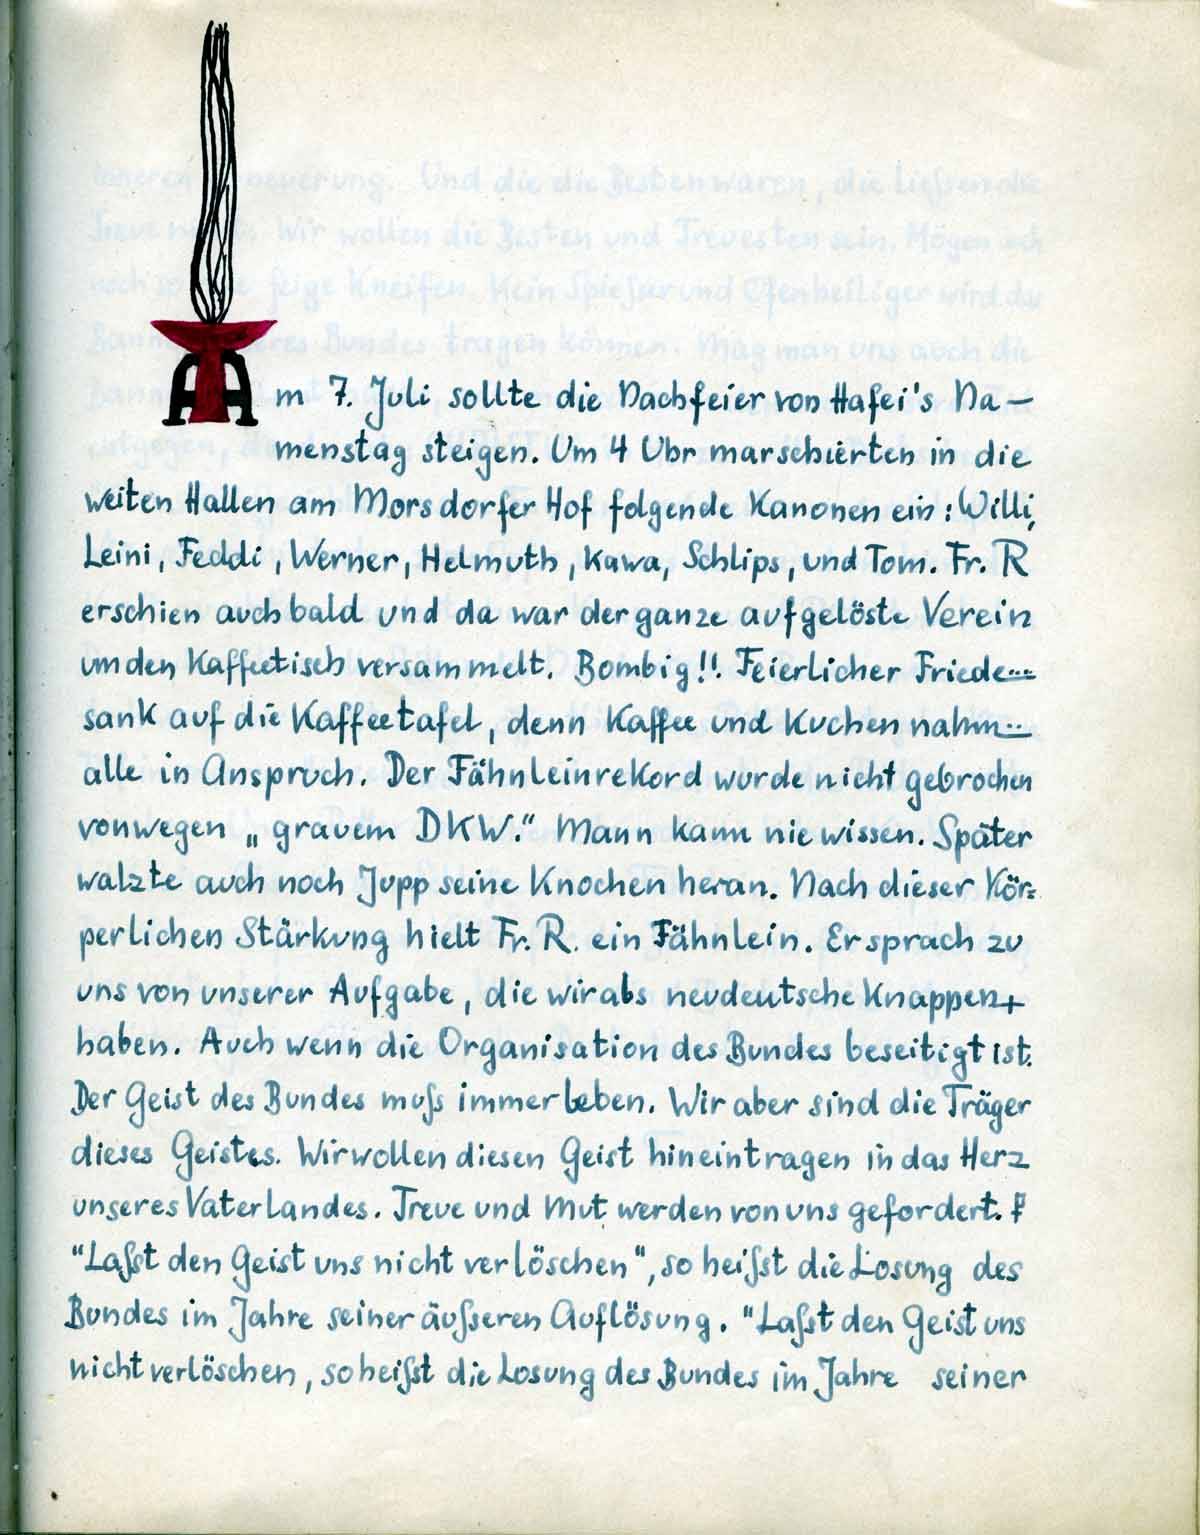 Am 7. Juli sollte die Nachfeier von Hafei's Na-
menstag steigen. Um 4 Uhr marschierten in die
weiten Hallen am Morsdorfer Hof folgende Kanonen ein: Willi,
Leini, Feddi, Werner, Helmuth, Kawa, Schlips, und Tom. Fr. R
erschien auch bald und da war der ganze aufgelöste Verein
um den Kaffeetisch versammelt. Bombig!! Feierlicher Friede...
sank auf die Kaffeetafel, denn Kaffee und Kuchen nahm..
alle in Anspruch. Der Fähnleinrekord wurde nicht gebrochen
vonwegen „grauem DKW." Mann kann nie wissen. Später
walzte auch noch Jupp seine Knochen heran. Nach dieser Kör=
perlichen Stärkung hielt Fr. R. ein Fähnlein. Er sprach zu
uns von unserer Aufgabe, die wir als neudeutsche Knappen
haben. Auch wenn die Organisation des Bundes beseitigt ist.
Der Geist des Bundes muß immer leben. Wir aber sind die Träger
dieses Geistes. Wir wollen diesen Geist hineintragen in das Herz
unseres Vaterlandes. Treue und Mut werden von uns gefordert.
"Laßt den Geist uns nicht verlöschen", so heißt die Losung des
Bundes im Jahre seiner äußeren Auflösung. "Laßt den Geist uns
nicht verlöschen, so heißt die Losung des Bundes im Jahre seiner